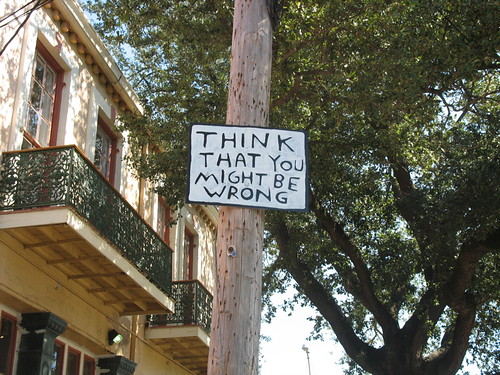 THINK
THAT YOU
MIGHT BE
WRONG